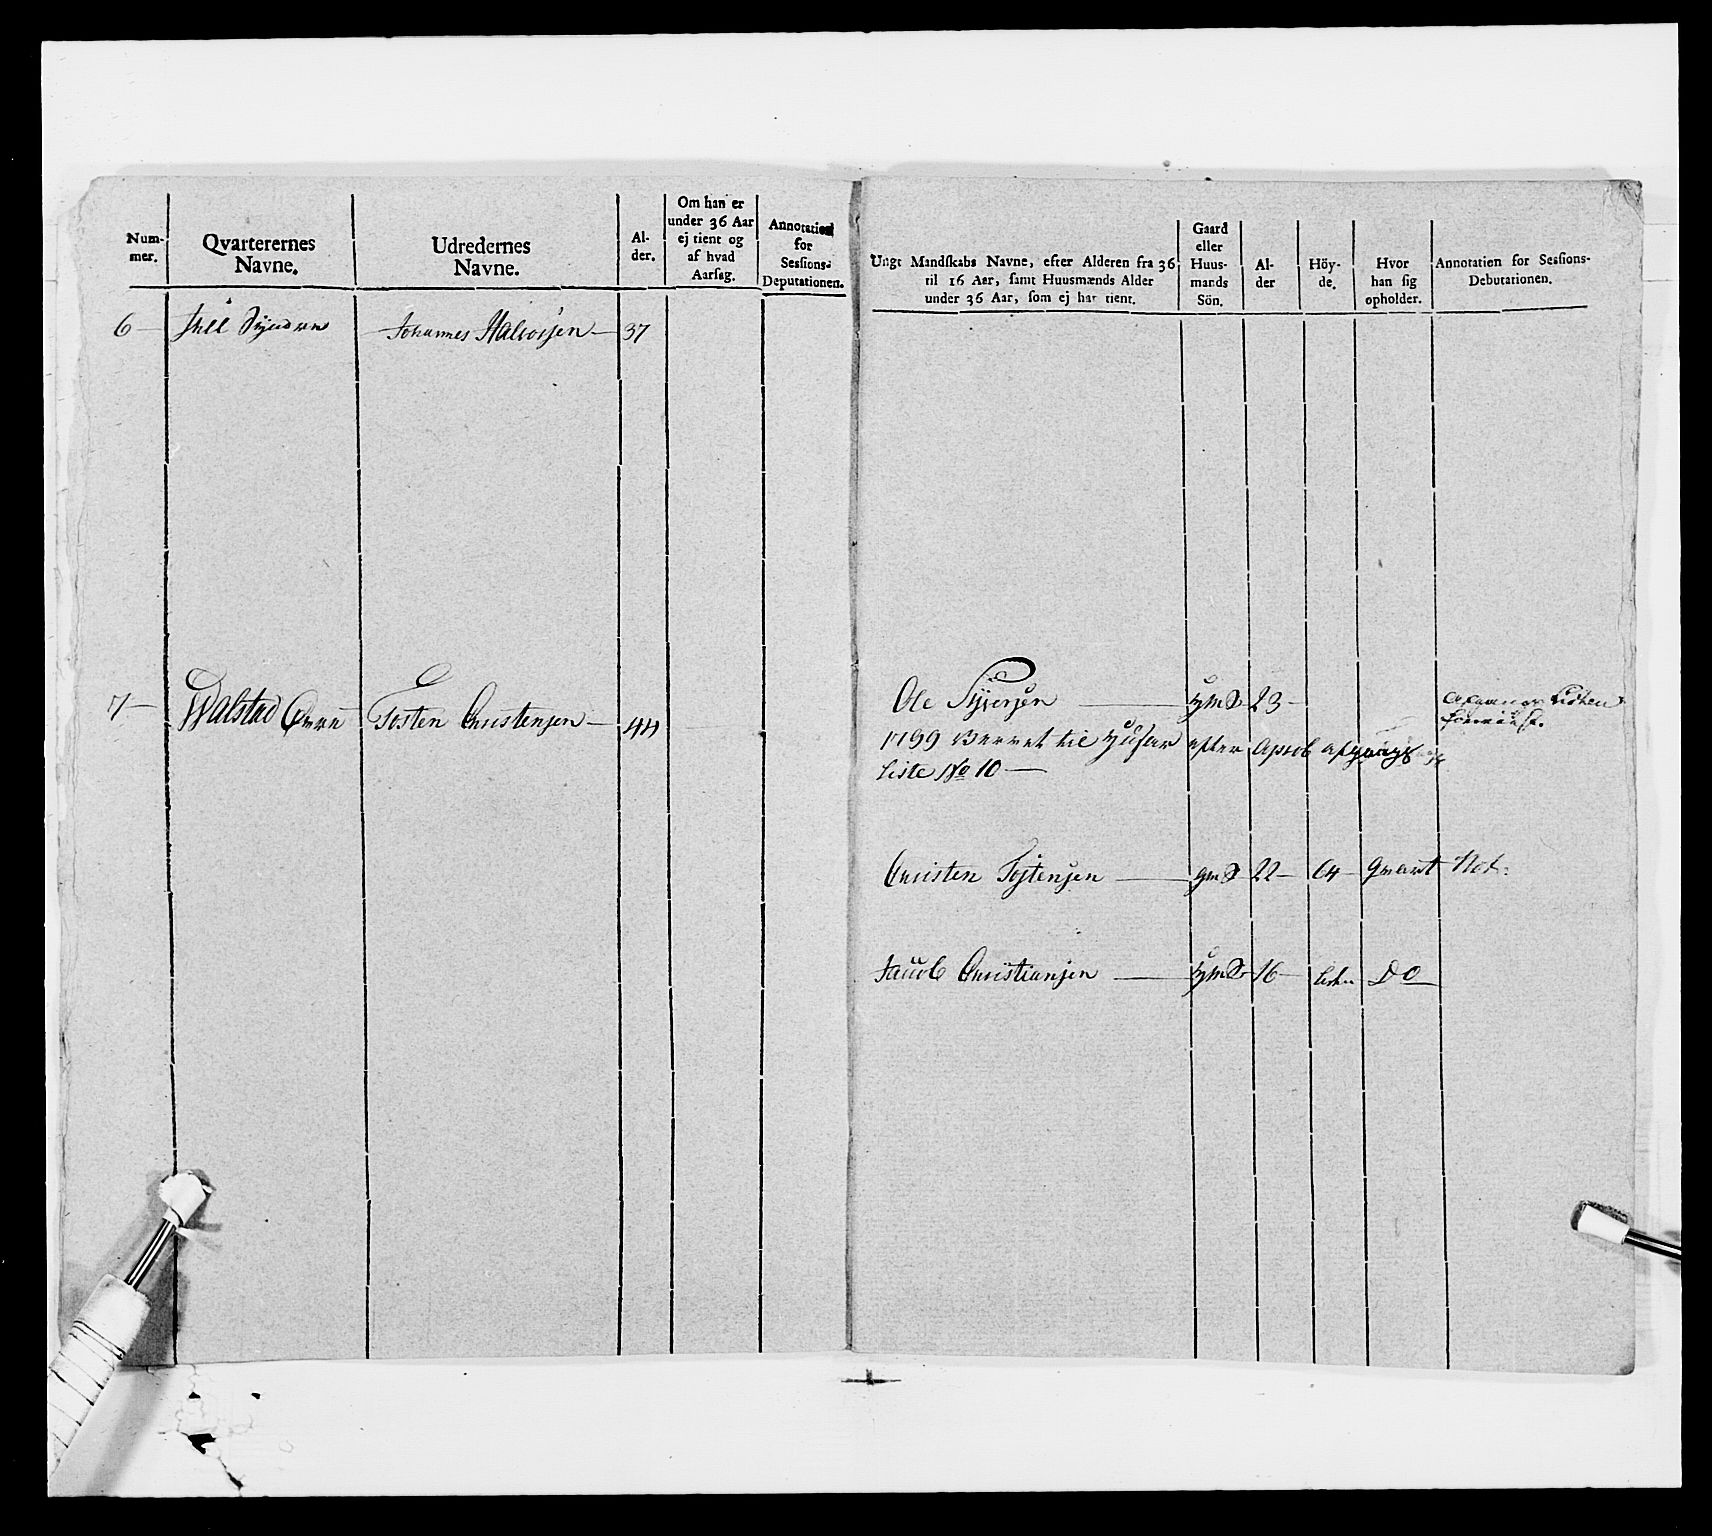 Num-
mer.
Qvarterernes
Navne.
Udredernes
Navne.
Al-
der.
Om han er
under 36 Aar
ej tient og
af hvad
Aarsag.
Annotation
for
Sessions-
Deputationen.
6 Johannes Halvorsen 37
7 Walstad Tosten Christensen 44
Ungt Mandskabs Navne, efter Alderen fra 36
til 16 Aar, samt Huusmænds Alder
under 36 Aar, som ej har tient.
Gaard
eller
Huus-
mands
Sön.
Al-
der
Höy-
de.
Hvor
han sig
opholder.
Annotation for Sessions-
Deputationen.
Ole Syversen 23
1799 til efter Aprob afgangs
Liste No 10
Christen Tostensen gmS 22 Qvart
Jacob Christiansen 16 Do